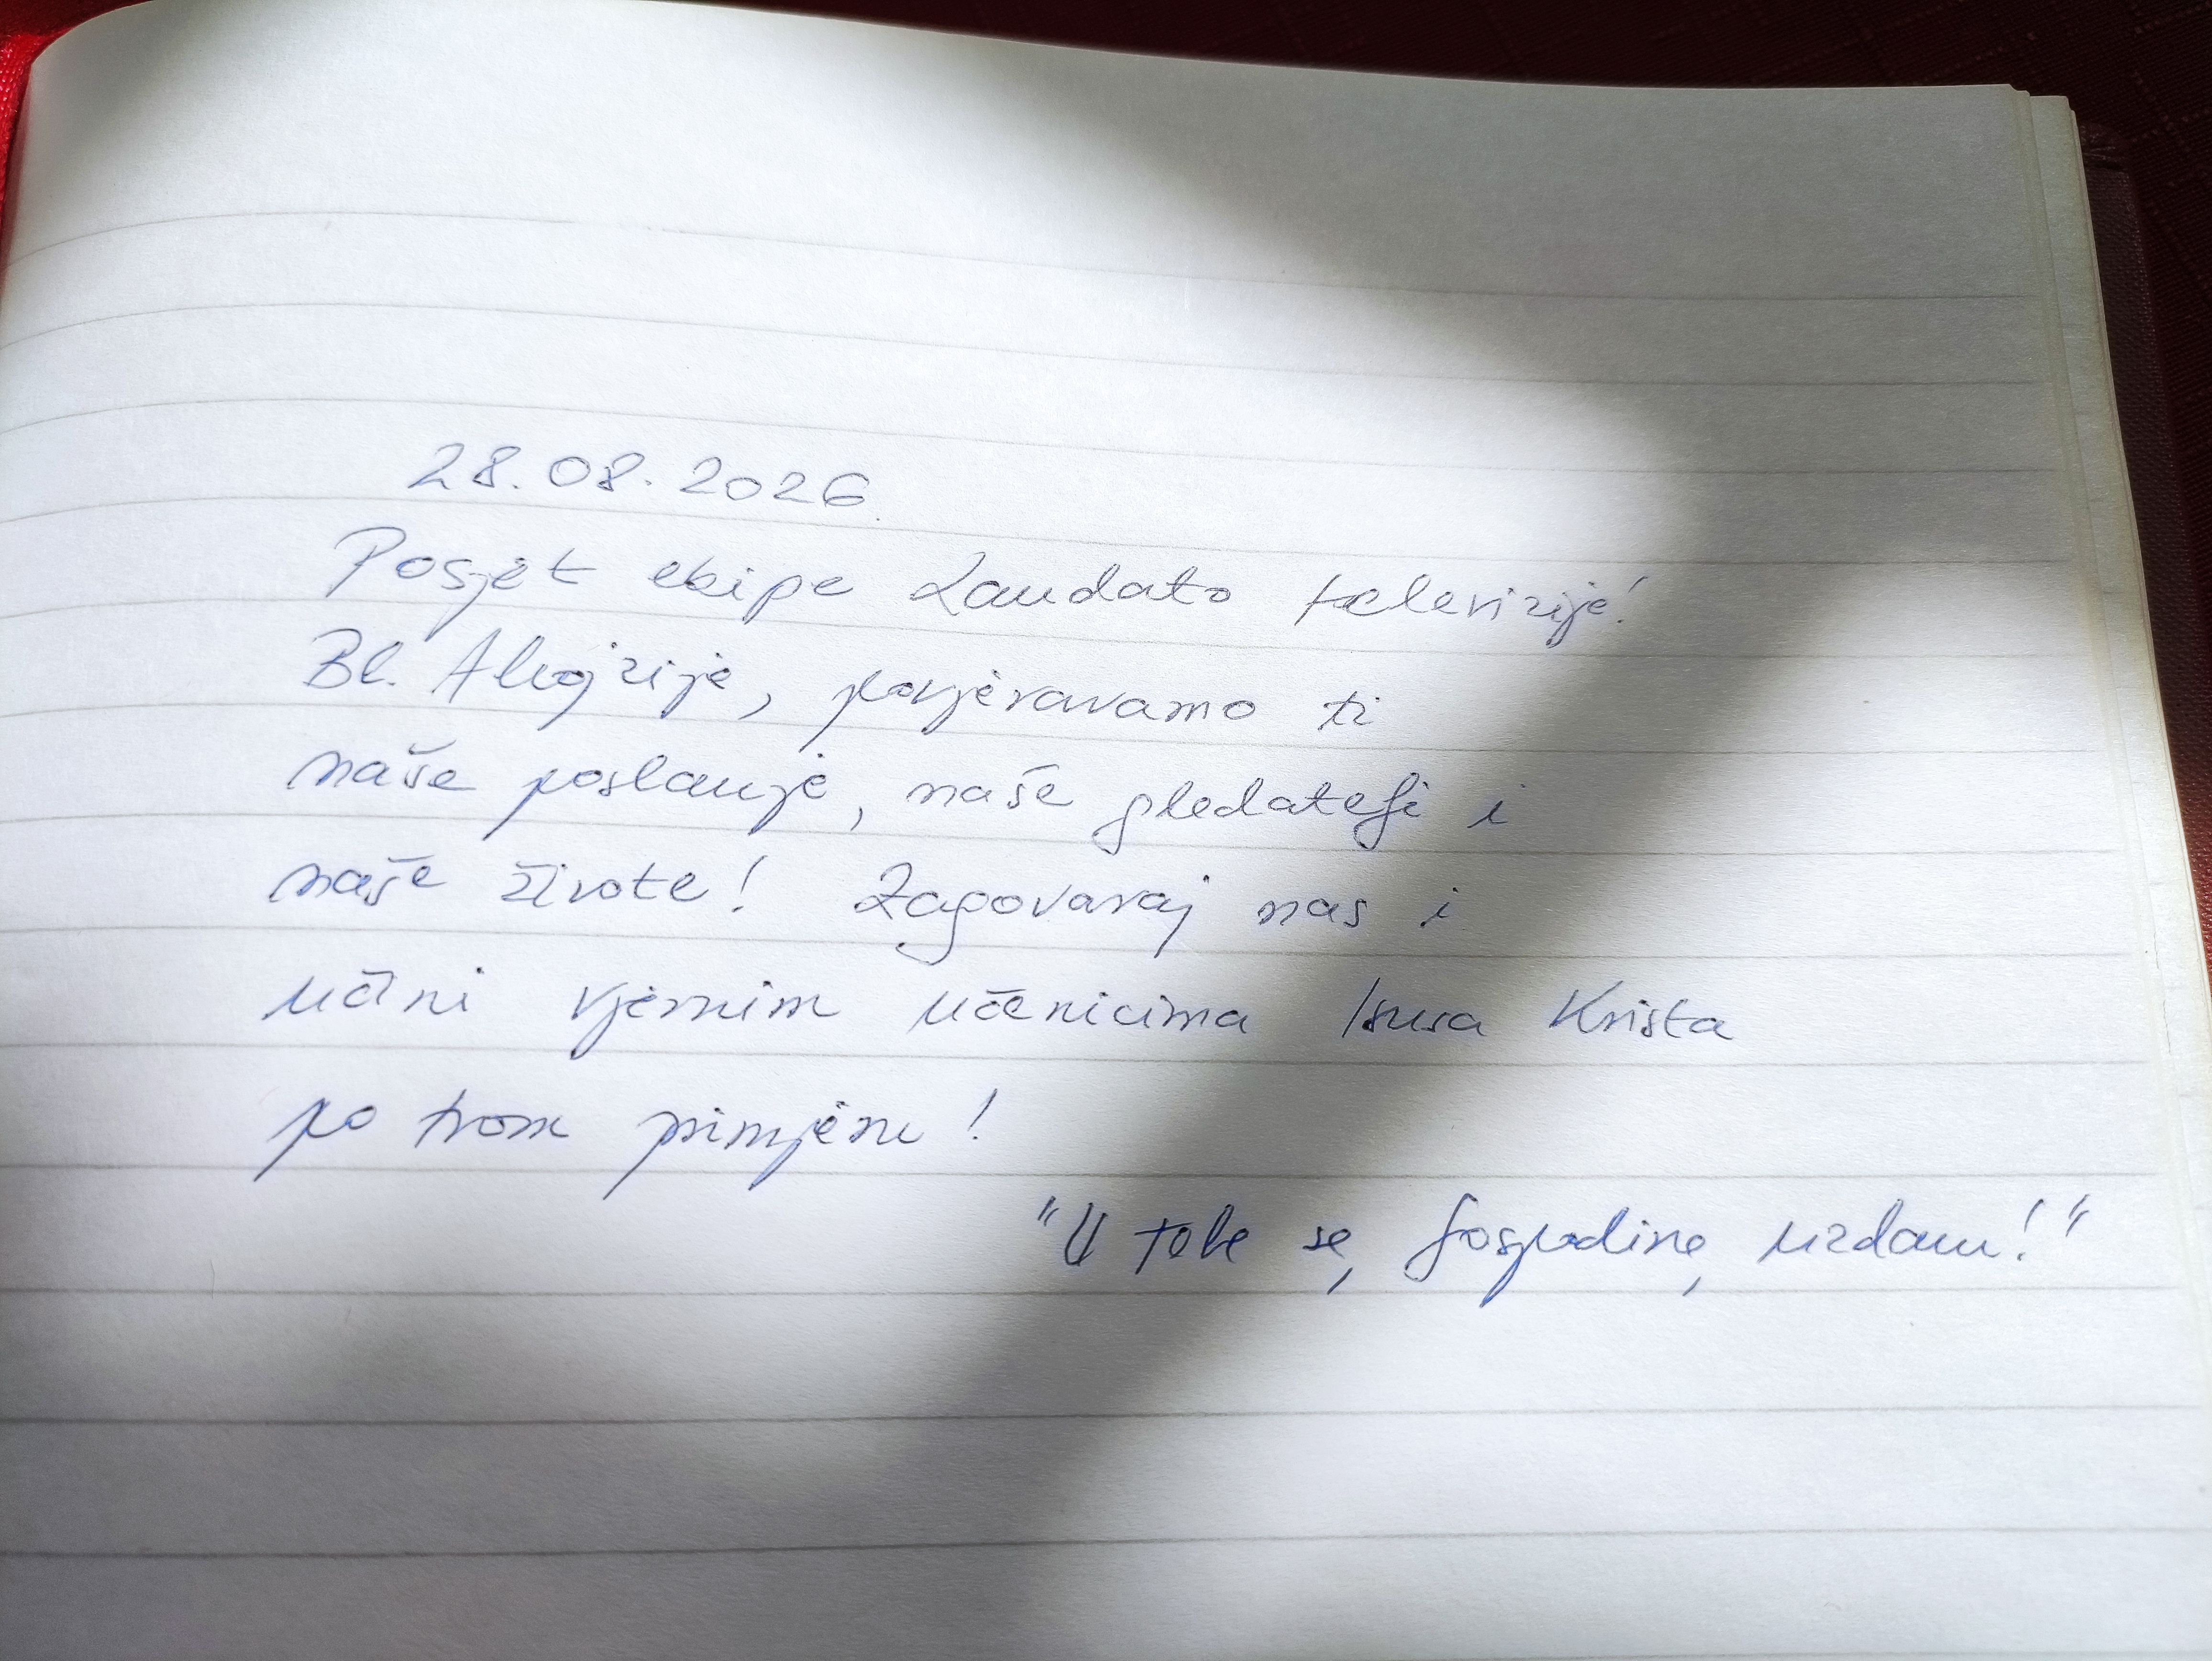 28.08.2026.
Posjet ekipe Laudato televizije!
Bl. Alojzije, povjeravamo ti
naše poslanje, naše gledatelje i
naše živote! Zagovaraj nas i
učini vjernim učenicima Isusa Krista
po tvom primjeru!
"U tebe se, Gospodine, uzdam!"